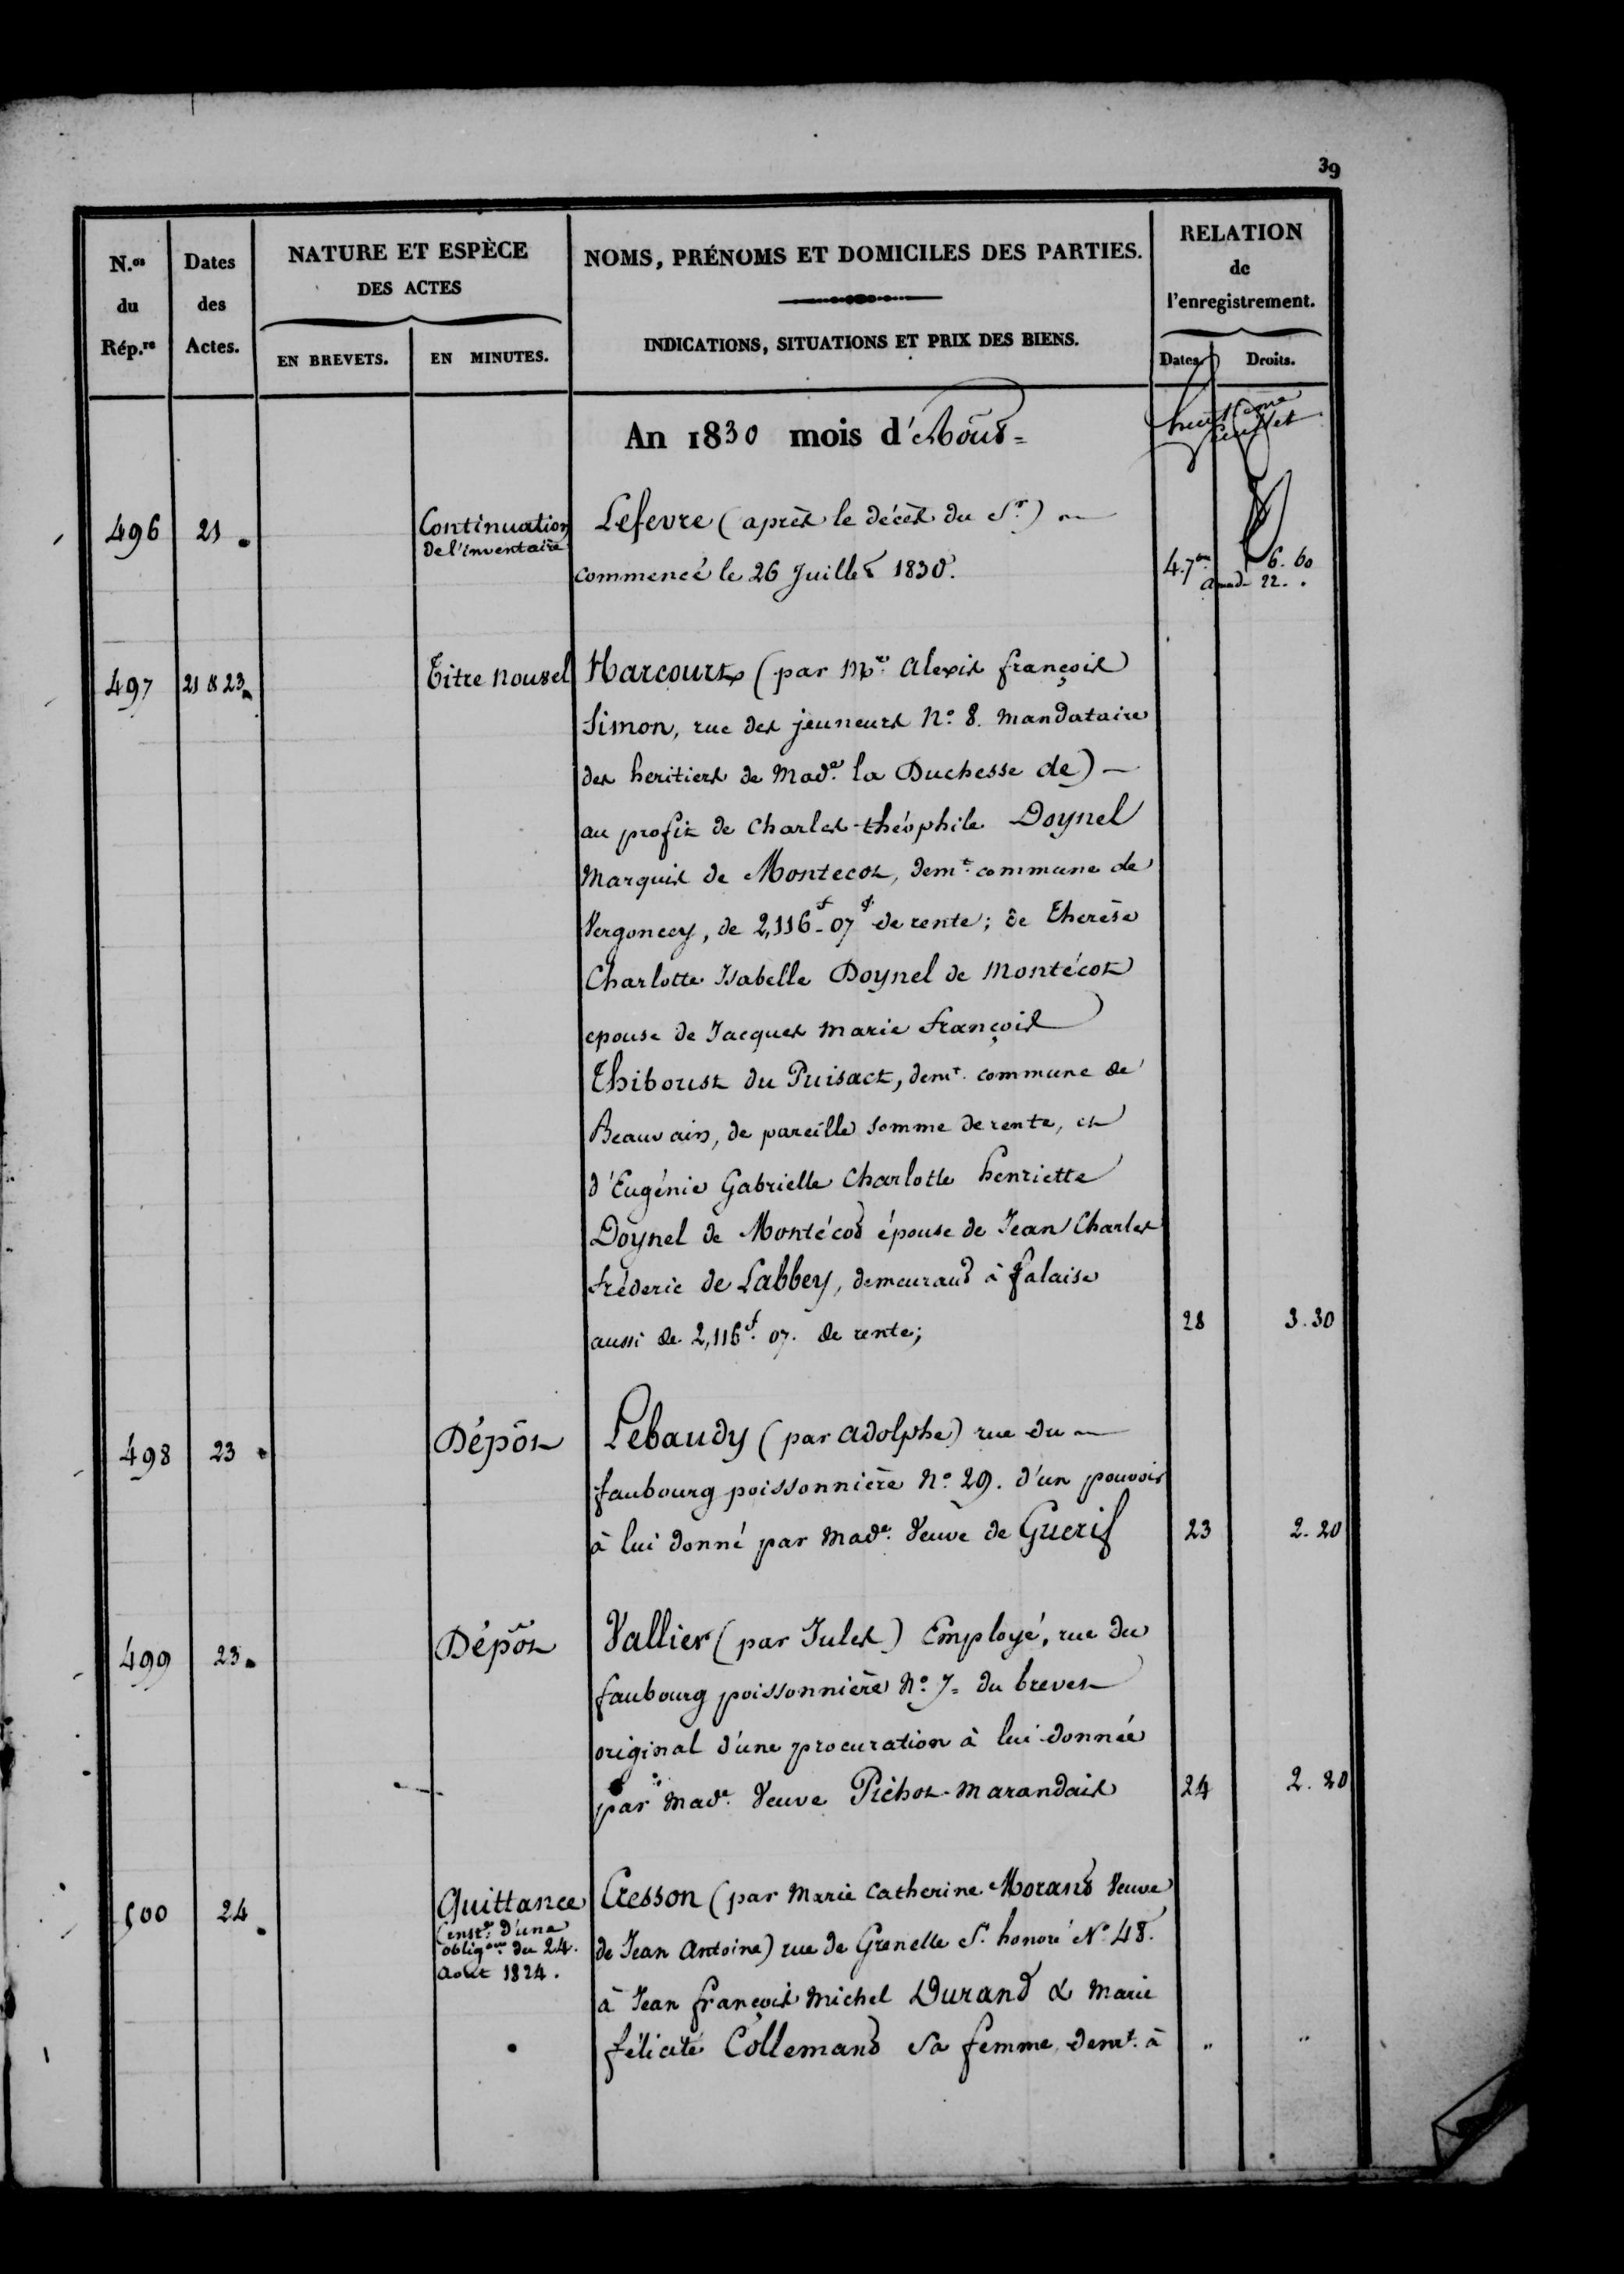 39
N.os du Rép.re
Dates des Actes.
NATURE ET ESPÈCE
DES ACTES
EN BREVETS.
EN MINUTES.
NOMS, PRÉNOMS ET DOMICILES DES PARTIES.
INDICATIONS, SITUATIONS ET PRIX DES BIENS.
RELATION
de
l'enregistrement.
Dates
Droits.
An 1830 mois d'Août =
huitième
feuillet
496 21. Continuation Lefevre (après le décès du Sr)
de l'inventaire
commencé le 26 Juillet 1830. 4. 7bre 6. 60
amde 22. .
497 21 & 23. Titre nouvel Harcourt (par Mre Alexis françois
Simon, rue des jeuneurs No. 8. mandataire
des heritiers de Made. la Duchesse de) —
au profit de Charles-théophile Doynel
Marquis de Montecot, demt. commune de
Vergoncey, de 2,116f-07c de rente; de Therèse
Charlotte Isabelle Doynel de Montécot
epouse de Jacques Marie François
Thiboust du Puisact, demt. commune de
Beauvain, de pareille somme de rente, et
d'Eugénie Gabrielle Charlotte henriette
Doynel de Montécot épouse de Jean Charles
fréderic de Labbey, demeurant à falaise
aussi de 2,116f. 07. de rente; 28 3. 30
498 23. Dépôt Lebaudy (par adolphe) rue du
faubourg poissonnière No. 29. d'un pouvoir
à lui donné par Made. Veuve de Guerif 23 2. 20
499 23. Dépôt Vallier (par Jules) Employé, rue du
faubourg poissonnière No. 7. du brevet
original d'une procuration à lui donnée
par Made. Veuve Pichot-Marandais 24 2. 20
500 24. Quittance Cresson (par Marie Catherine Morand Veuve
d'une
obligon. du 24. de Jean Antoine) rue de Grenelle St. honoré No. 48.
Août 1824.
à Jean françois Michel Durand & Marie
félicité Collemand sa femme, demt. à " "